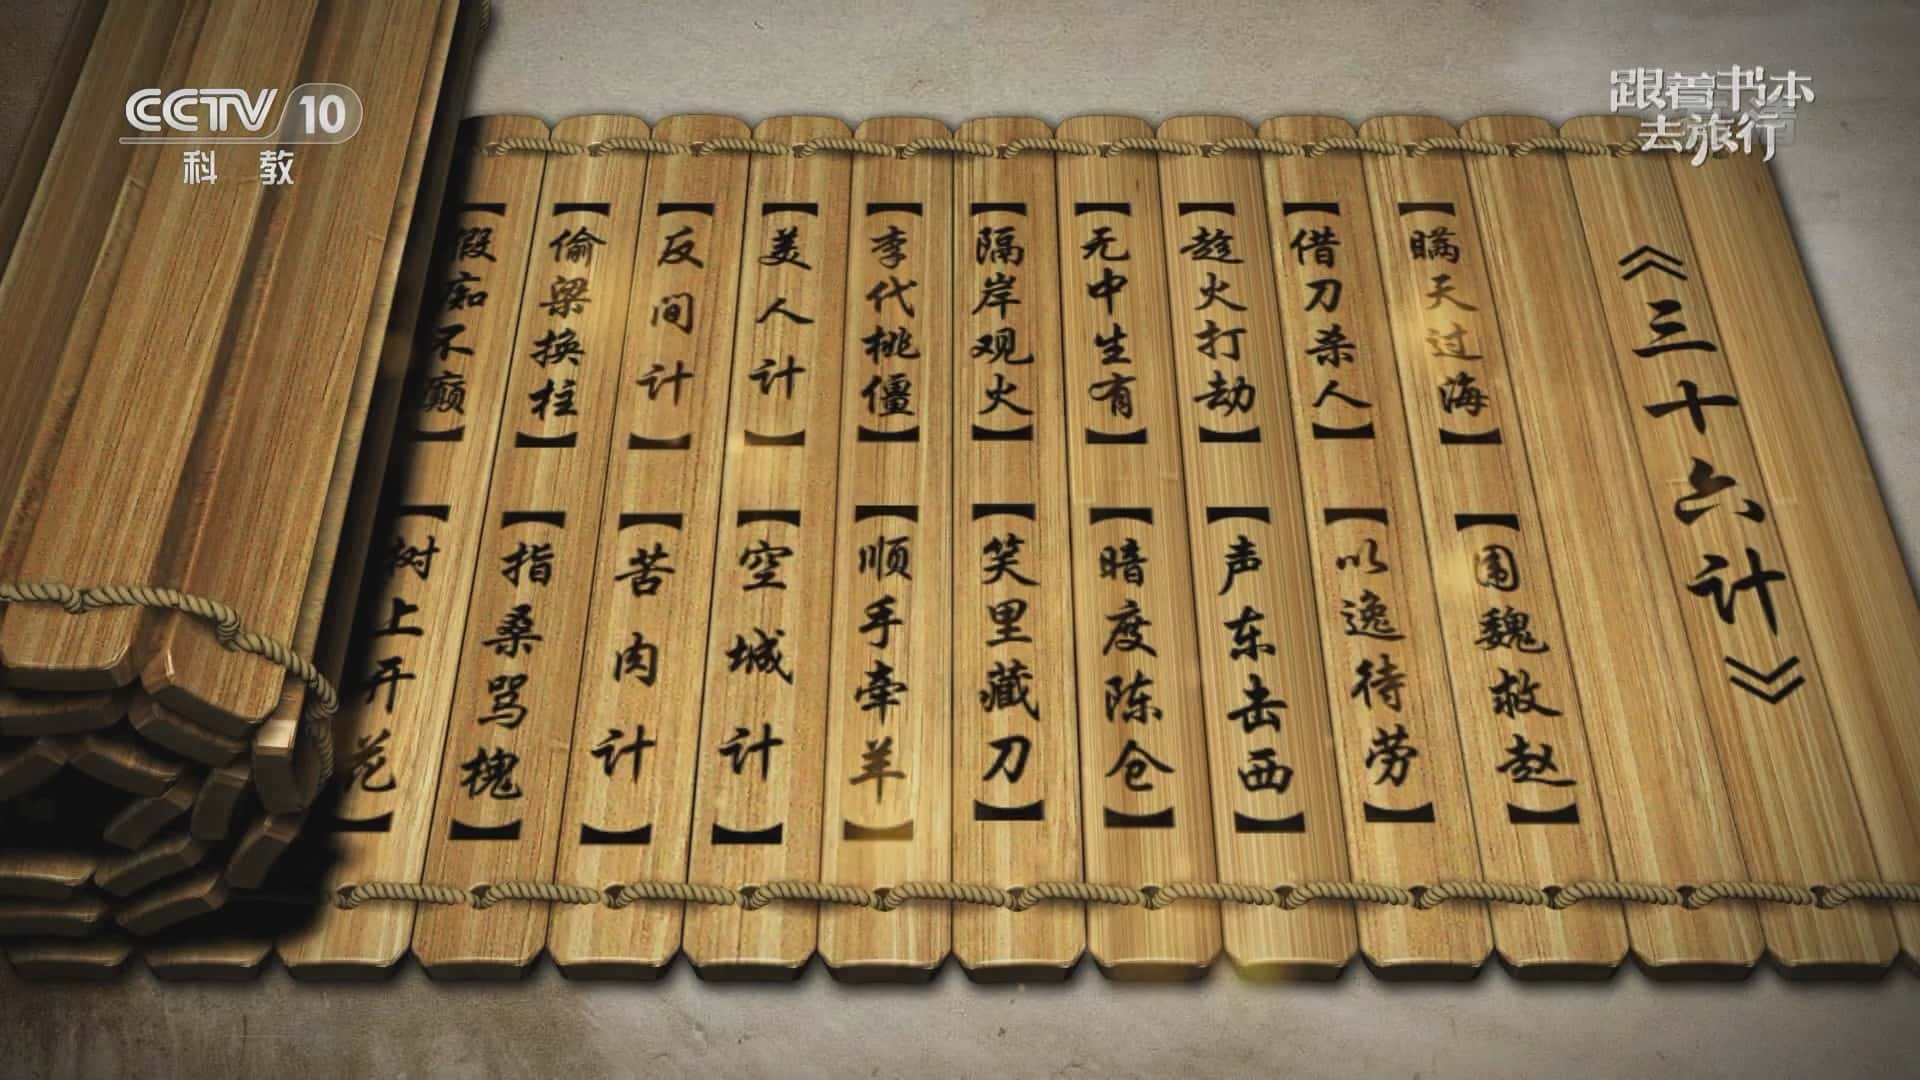 CCTV 10
科 教
跟着书本
去旅行
《三十六计》
【瞒天过海】
【围魏救赵】
【借刀杀人】
【以逸待劳】
【趁火打劫】
【声东击西】
【无中生有】
【暗度陈仓】
【隔岸观火】
【笑里藏刀】
【李代桃僵】
【顺手牵羊】
【美人计】
【空城计】
【反间计】
【苦肉计】
【偷梁换柱】
【指桑骂槐】
【假痴不癫】
【树上开花】